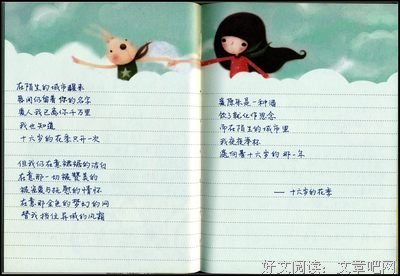 在陌生的城市醒来
唇间仍留着你的名字
爱人我已离你千万里
我也知道
十六岁的花季只开一次
但我仍在意裙裾的洁白
在意那一切被赞美的
被宠爱与抚慰的情怀
在意那金色的梦幻的网
替我挡住异域的风霜
爱原来是一种酒
饮了就化作思念
而在陌生的城市里
我夜夜举杯
遥向着十六岁的那一年
—— 十六岁的花季
好文阅读：文章吧网